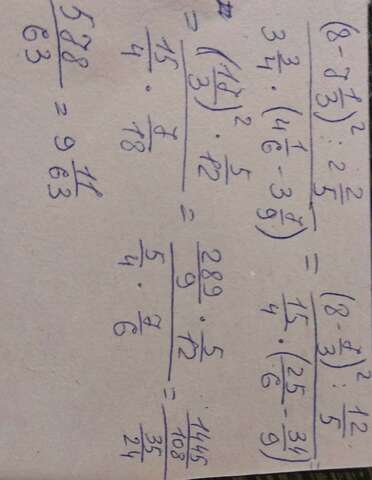 (8 - 2 1/3)² : 2 2/5 / 3 3/4 · (4 1/6 - 3 7/9) = (8 - 7/3)² : 12/5 / 15/4 · (25/6 - 34/9) =
= (17/3)² · 5/12 / 15/4 · 7/18 = 289/9 · 5/12 / 5/4 · 7/6 = 1445/108 / 35/24
578/63 = 9 11/63